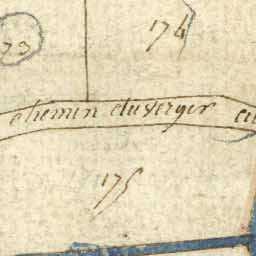 174
73
chemin du verger
175